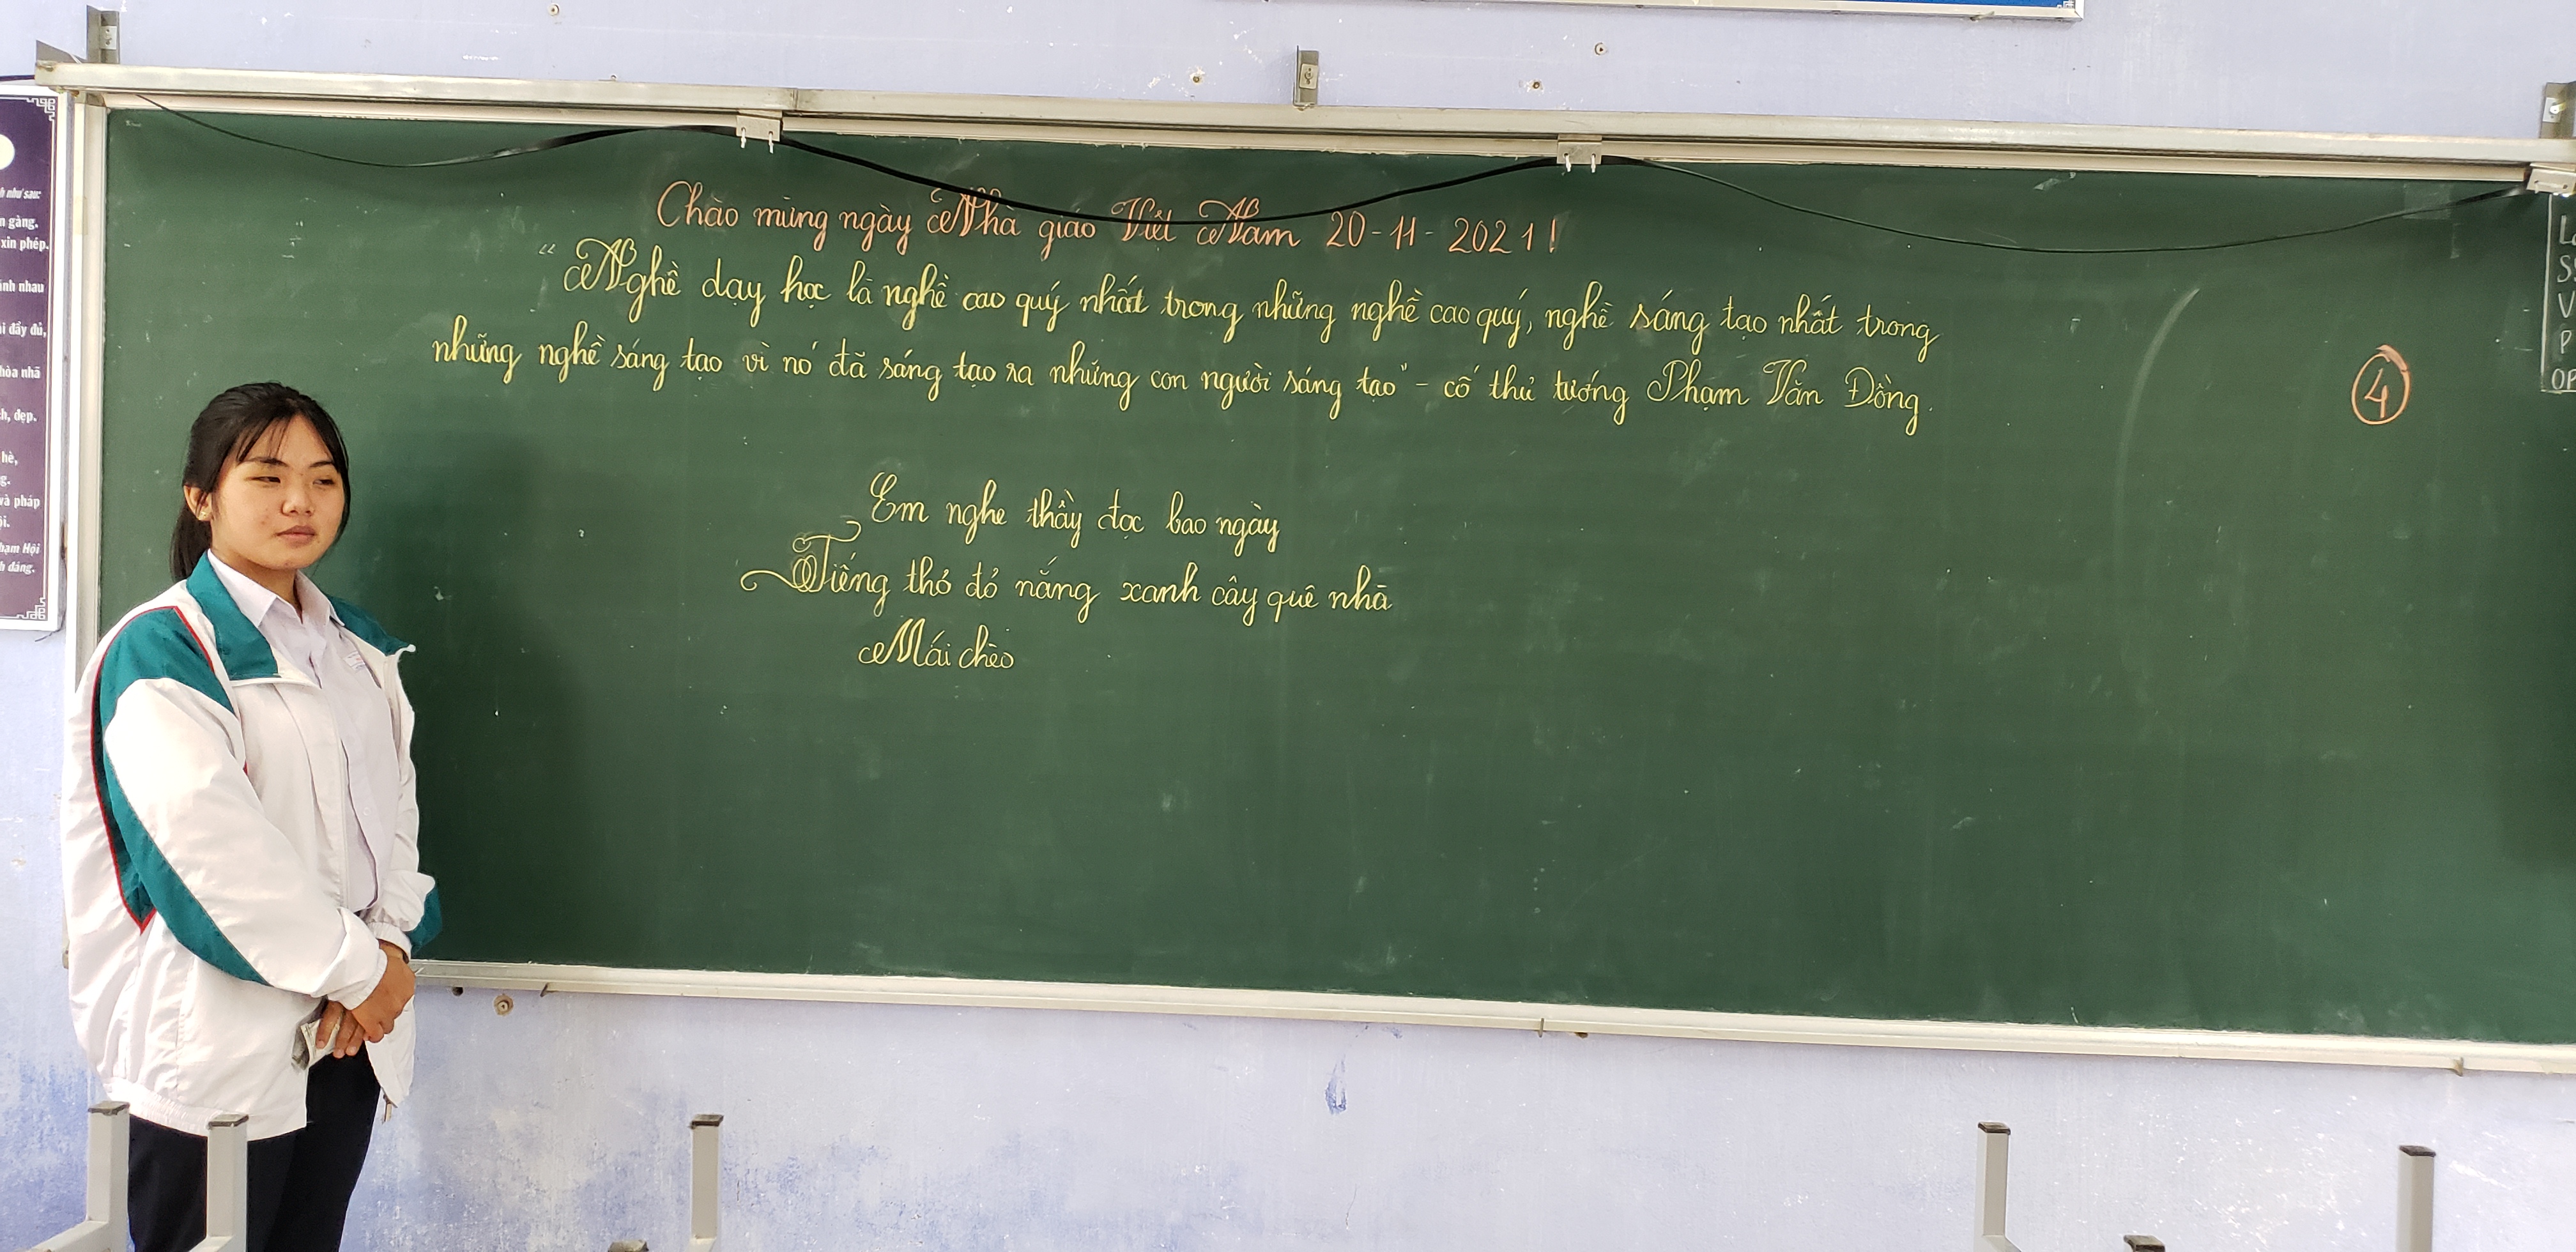 Chào mừng ngày Nhà giáo Việt Nam 20-11-2021!
"Nghề dạy học là nghề cao quý nhất trong những nghề cao quý, nghề sáng tạo nhất trong
những nghề sáng tạo vì nó đã sáng tạo ra những con người sáng tạo" - cố thủ tướng Phạm Văn Đồng.
Em nghe thầy đọc bao ngày
Tiếng thơ đỏ nắng xanh cây quê nhà
Mái chèo
4
h như sau:
gàng.
xin phép.
ánh nhau
i đầy đủ,
hòa nhã
h, đẹp.
hè,
g.
và pháp
ội.
hạm Hội
h đáng.
L
S
V
P
OP